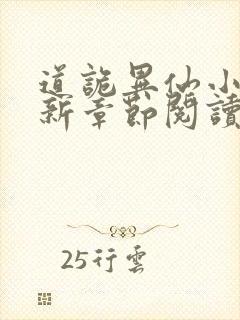 道詭異仙小
新章節閱讀
25行雲